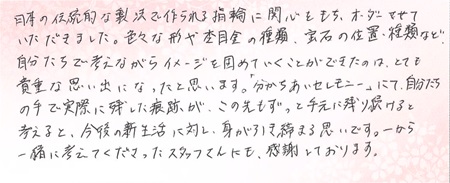 日本の伝統的な製法で作られる指輪に関心をもち、オーダーさせて
いただきました。色々な形や木目金の種類、宝石の位置・種類など、
自分たちで考えながらイメージを固めていくことができたのは、とても
貴重な思い出になったと思います。「分かちあいセレモニー」にて、自分たち
の手で実際に残した痕跡が、この先もずっと手元に残り続けると
考えると、今後の新生活に対し、身が引き締まる思いです。一から
一緒に考えてくださったスタッフさんにも、感謝しております。